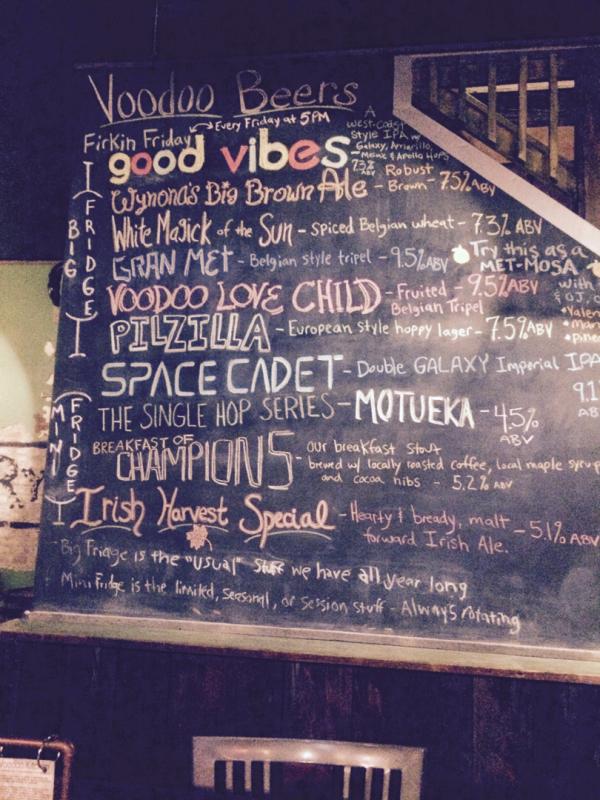 Voodoo Beers
Firkin Friday Every Friday at 5PM
good vibes - A West-Coast
style IPA w/
Galaxy, Amarillo,
Apollo Hops
7.3% ABV
Wynona's Big Brown Ale - Robust Brown - 7.5% ABV
White Magick of the Sun - spiced Belgian wheat - 7.3% ABV
GRAN MET - Belgian style tripel - 9.5% ABV
Try this as a
MET-MOSA
with
OJ,
VOODOO LOVE CHILD - Fruited - 9.5% ABV
Belgian Tripel
PILZILLA - European style hoppy lager - 7.5% ABV
SPACE CADET - Double GALAXY Imperial IPA
9.1
AB
BIG FRIDGE
THE SINGLE HOP SERIES - MOTUEKA - 4.5%
ABV
BREAKFAST OF
CHAMPIONS - our breakfast stout
brewed w/ locally roasted coffee, local maple syrup
and cocoa nibs - 5.2% ABV
Irish Harvest Special - Hearty & bready, malt - 5.1% ABV
forward Irish Ale.
MINI FRIDGE
Big Fridge is the "usual" stuff we have all year long
Mini Fridge is the limited, seasonal, or session stuff - Always rotating